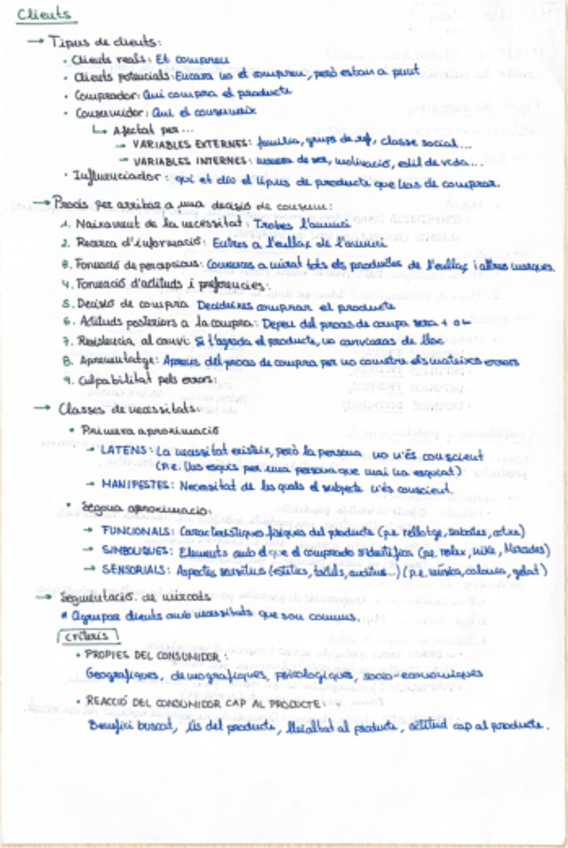 Clients
→ Tipus de clients:
· Clients reals: Et compren
· Clients potencials: Encara no et compren, però estan a punt
· Comprador: Qui compra el producte
· Consumidor: Qui el consumeix
↳ Afectat per...
→ VARIABLES EXTERNES: família, grups de ref, classe social...
→ VARIABLES INTERNES: manera de ser, motivació, estil de vida...
· Influenciador: qui et diu el tipus de producte que has de comprar.
→ Procés per arribar a una decisió de consum:
1. Naixement de la necessitat: Trobes l'anunci
2. Recerca d'informació: Entres a l'enllaç de l'anunci
3. Formació de percepcions: Comences a mirar tots els productes de l'enllaç i altres marques.
4. Formació d'actituds i preferencies:
5. Decisió de compra: Decideixes comprar el producte
6. Actituds posteriors a la compra: Depen del proces de compra sera + o -
7. Resistencia al canvi: Si t'agrada el producte, no canviaras de lloc
8. Aprenentatge: Aprens del proces de compra per no cometre els mateixos errors
9. Culpabilitat pels errors:
→ Classes de necessitats:
· Primera aproximació
→ LATENS: La necessitat existeix, però la persona no n'és conscient
(p.e. Uns esquís per una persona que mai ha esquiat)
→ MANIFESTES: Necessitat de les quals el subjecte n'és conscient.
· Segona aproximació:
→ FUNCIONALS: Característiques físiques del producte (p.e. rellotge, sabates, cotxe)
→ SIMBOLIQUES: Elements amb el que el comprador s'identifica (p.e. rolex, nike, Mercedes)
→ SENSORIALS: Aspectes sensitius (estètics, tactils, auditius...) (p.e. música, colonia, gelat)
→ Segmentació de mercats
* Agrupar clients amb necessitats que son comuns.
Criteris
· PROPIES DEL CONSUMIDOR:
Geografiques, demografiques, psicologiques, socio-economiques
· REACCIÓ DEL CONSUMIDOR CAP AL PRODUCTE:
Benefici buscat, ús del producte, lleialtat al producte, actitud cap al producte.